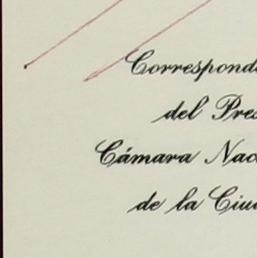 Correspond
del Pre
Cámara Nac
de la Ciu